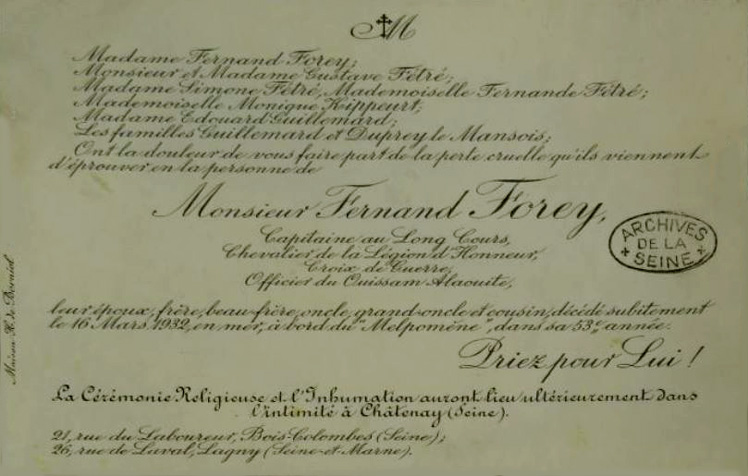 M
Madame Fernand Forey;
Monsieur et Madame Gustave Fétré;
Madame Simone Fétré, Mademoiselle Fernande Fétré;
Mademoiselle Monique Keippeurt;
Madame Edouard Guillemard;
Les familles Guillemard et Duprey le Mansois;
Ont la douleur de vous faire part de la perte cruelle qu'ils viennent
d'éprouver en la personne de
Monsieur Fernand Forey,
Capitaine au Long Cours,
Chevalier de la Légion d'Honneur,
Croix de Guerre,
Officier du Ouissam Alaouite,
leur époux, frère, beau-frère, oncle, grand-oncle et cousin, décédé subitement
le 16 Mars 1932, en mer, à bord du "Melpomène", dans sa 53e année.
Priez pour Lui !
La Cérémonie Religieuse et l'Inhumation auront lieu ultérieurement dans
l'intimité à Châtenay (Seine).
21, rue du Laboureur, Bois-Colombes (Seine);
26, rue de Laval, Lagny (Seine-et-Marne).
Maison H. de Borniol
ARCHIVES
DE LA
SEINE